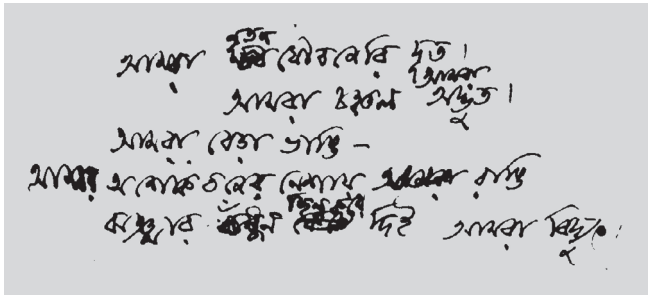 আমরা নূতন যৌবনেরি দূত।
আমরা চঞ্চল, আমরা অদ্ভুত।
আমরা বেড়া ভাঙি –
আমরা অশোকবনের নেশায় রাঙি
ঝঞ্ঝার বন্ধন ছিন্ন করে দিই আমরা বিদ্যুৎ।